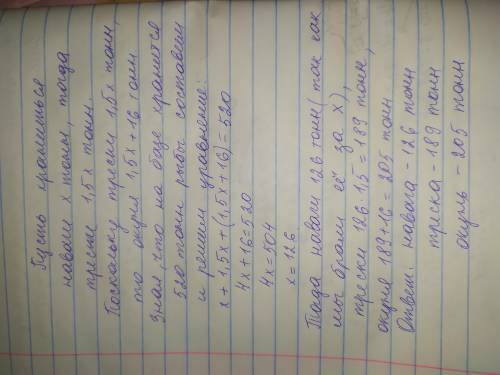 Пусть хранишься
наваги х тонн, тогда
трески 1,5х тонн.
Поскольку трески 1,5х тонн,
то окуня 1,5х + 16 тонн
Зная, что на базе хранится
520 тонн рыбы составим
и решим уравнение:
х + 1,5х + (1,5х + 16) = 520
4х + 16 = 520
4х = 504
х = 126
Тогда наваги 126 тонн (так как
мы брали её за х),
трески 126 · 1,5 = 189 тонн,
окуня 189 + 16 = 205 тонн
Ответ: навага - 126 тонн
треска - 189 тонн
окунь - 205 тонн